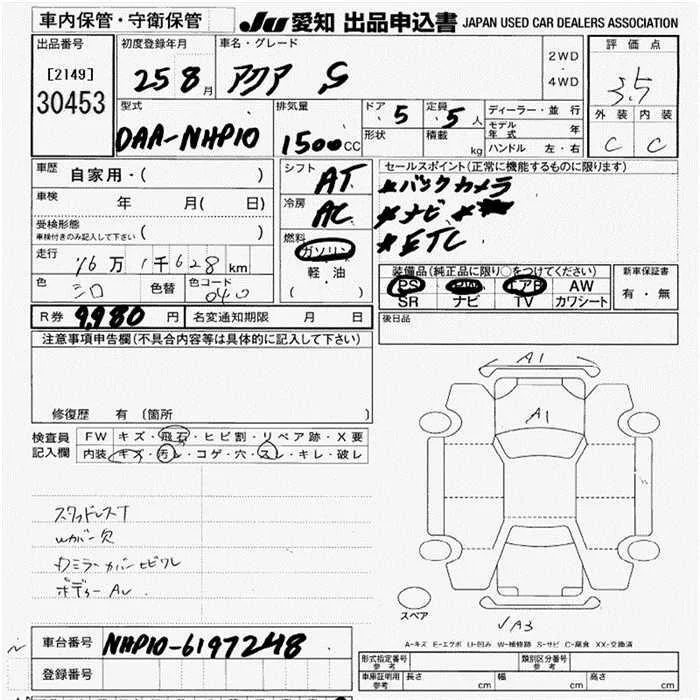 車内保管・守衛保管
JU 愛知 出品申込書 JAPAN USED CAR DEALERS ASSOCIATION
出品番号
[2149]
30453
初度登録年月
25 8月
車名・グレード
アクア S
2WD
・
4WD
評価点
3.5
外装 内装
C C
型式
DAA-NHP10
排気量
1500cc
ドア 5
形状
定員 5人
積載 kg
ディーラー・並行
モデル年式 年
ハンドル 左・右
車歴
自家用・( )
車検 年 月( 日)
受検形態
車検付きのみ記入して下さい ( )
走行
16万 1千628km
色 シロ
色替
色コード 040
シフト AT
冷房 AC
燃料
ガソリン
軽・油
( )
セールスポイント(正常に機能するものに限ります)
*バックカメラ
*ナビ *
*ETC
装備品(純正品に限り○をつけてください)
PS PW エアB AW
SR ナビ TV カワシート
新車保証書
有・無
R券 9,980円
名変通知期限 月 日
後日品
注意事項申告欄(不具合内容等は具体的に記入して下さい)
修復歴 有 (箇所 )
検査員
記入欄
FW キズ・飛石・ヒビ割・リペア跡・X要
内装 キズ・汚レ・コゲ・穴・スレ・キレ・破レ
スタッドレスT
Wカバー欠
ボディーAu
A1
A1
スペア
√A3
A-キズ E-エクボ U-凹み W-補修跡 S-サビ C-腐食 XX-交換済
車台番号 NHP10-6197248
登録番号
形式指定番号
参考
類別区分番号
参考
車庫証明用
参考
長さ cm
幅 cm
高さ cm